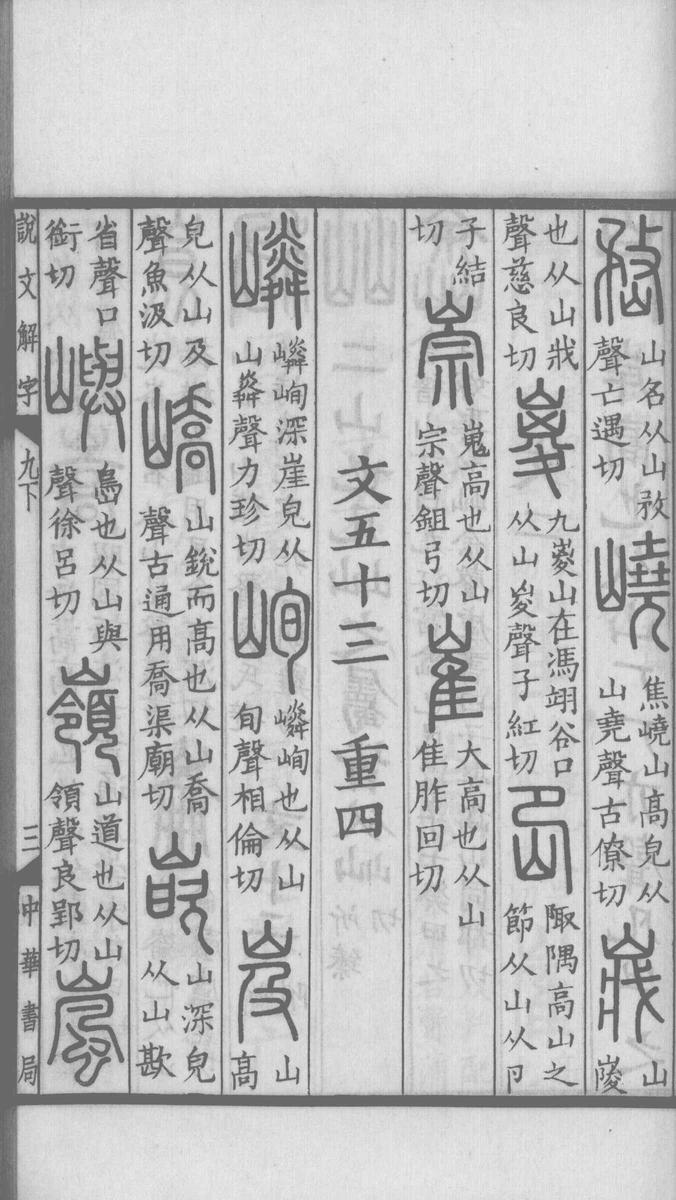 嵍山名从山敄聲亡遇切嶢焦嶢山高皃从山堯聲古僚切㦳山㚇
也从山戕聲慈良切嵏九嵏山在馮翊谷口从山㚇聲子紅切岊陬隅高山之節从山从卪
子結切崇嵬高也从山宗聲鉏弓切崔大高也从山隹胙回切
文五十三 重四
嶙嶙峋深崖皃从山粦聲力珍切峋嶙峋也从山旬聲相倫切岌山高
皃从山及聲魚汲切嶠山銳而高也从山喬聲古通用喬渠廟切嵌山深皃从山歁
省聲口銜切嶼島也从山與聲徐呂切嶺山道也从山領聲良郢切嵐
說文解字 九下 三 中華書局